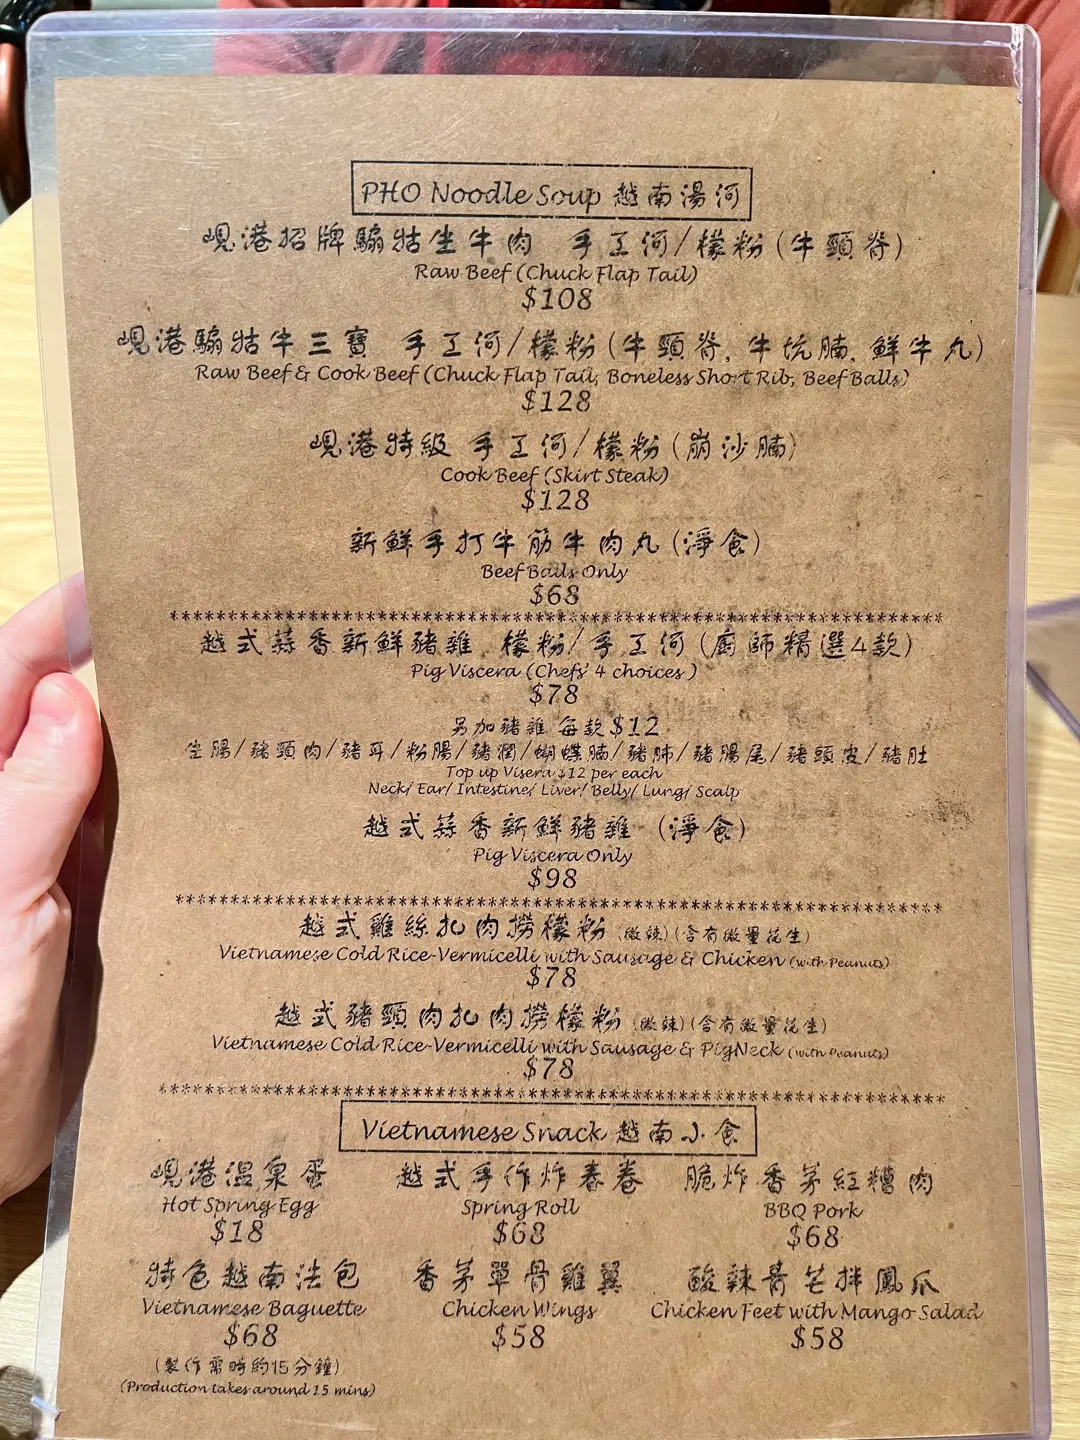 PHO Noodle Soup 越南湯河
峴港招牌騸牯生牛肉 手工河/檬粉(牛頸脊)
Raw Beef (Chuck Flap Tail)
$108
峴港騸牯牛三寶 手工河/檬粉(牛頸脊, 牛坑腩, 鮮牛丸)
Raw Beef & Cook Beef (Chuck Flap Tail, Boneless Short Rib, Beef Balls)
$128
峴港特級 手工河/檬粉(崩沙腩)
Cook Beef (Skirt Steak)
$128
新鮮手打牛筋牛肉丸(淨食)
Beef Balls Only
$68
******************************************************************
越式蒜香新鮮豬雜 檬粉/手工河(廚師精選4款)
Pig Viscera (Chefs' 4 choices )
$78
另加豬雜 每款$12
生腸/豬頸肉/豬耳/粉腸/豬潤/蝴蝶腩/豬肺/豬腸尾/豬頭皮/豬肚
Top up Visera $12 per each
Neck/ Ear/ Intestine/ Liver/ Belly/ Lung/ Scalp
越式蒜香新鮮豬雜 (淨食)
Pig Viscera Only
$98
******************************************************************
越式雞絲扎肉撈檬粉(微辣)(含有微量花生)
Vietnamese Cold Rice-Vermicelli with Sausage & Chicken (with Peanuts)
$78
越式豬頸肉扎肉撈檬粉(微辣)(含有微量花生)
Vietnamese Cold Rice-Vermicelli with Sausage & PigNeck (with Peanuts)
$78
******************************************************************
Vietnamese Snack 越南小食
峴港溫泉蛋 越式手作炸春卷 脆炸香茅紅糟肉
Hot Spring Egg Spring Roll BBQ Pork
$18 $68 $68
特色越南法包 香茅單骨雞翼 酸辣青芒拌鳳爪
Vietnamese Baguette Chicken Wings Chicken Feet with Mango Salad
$68 $58 $58
(製作需時約15分鐘)
(Production takes around 15 mins)